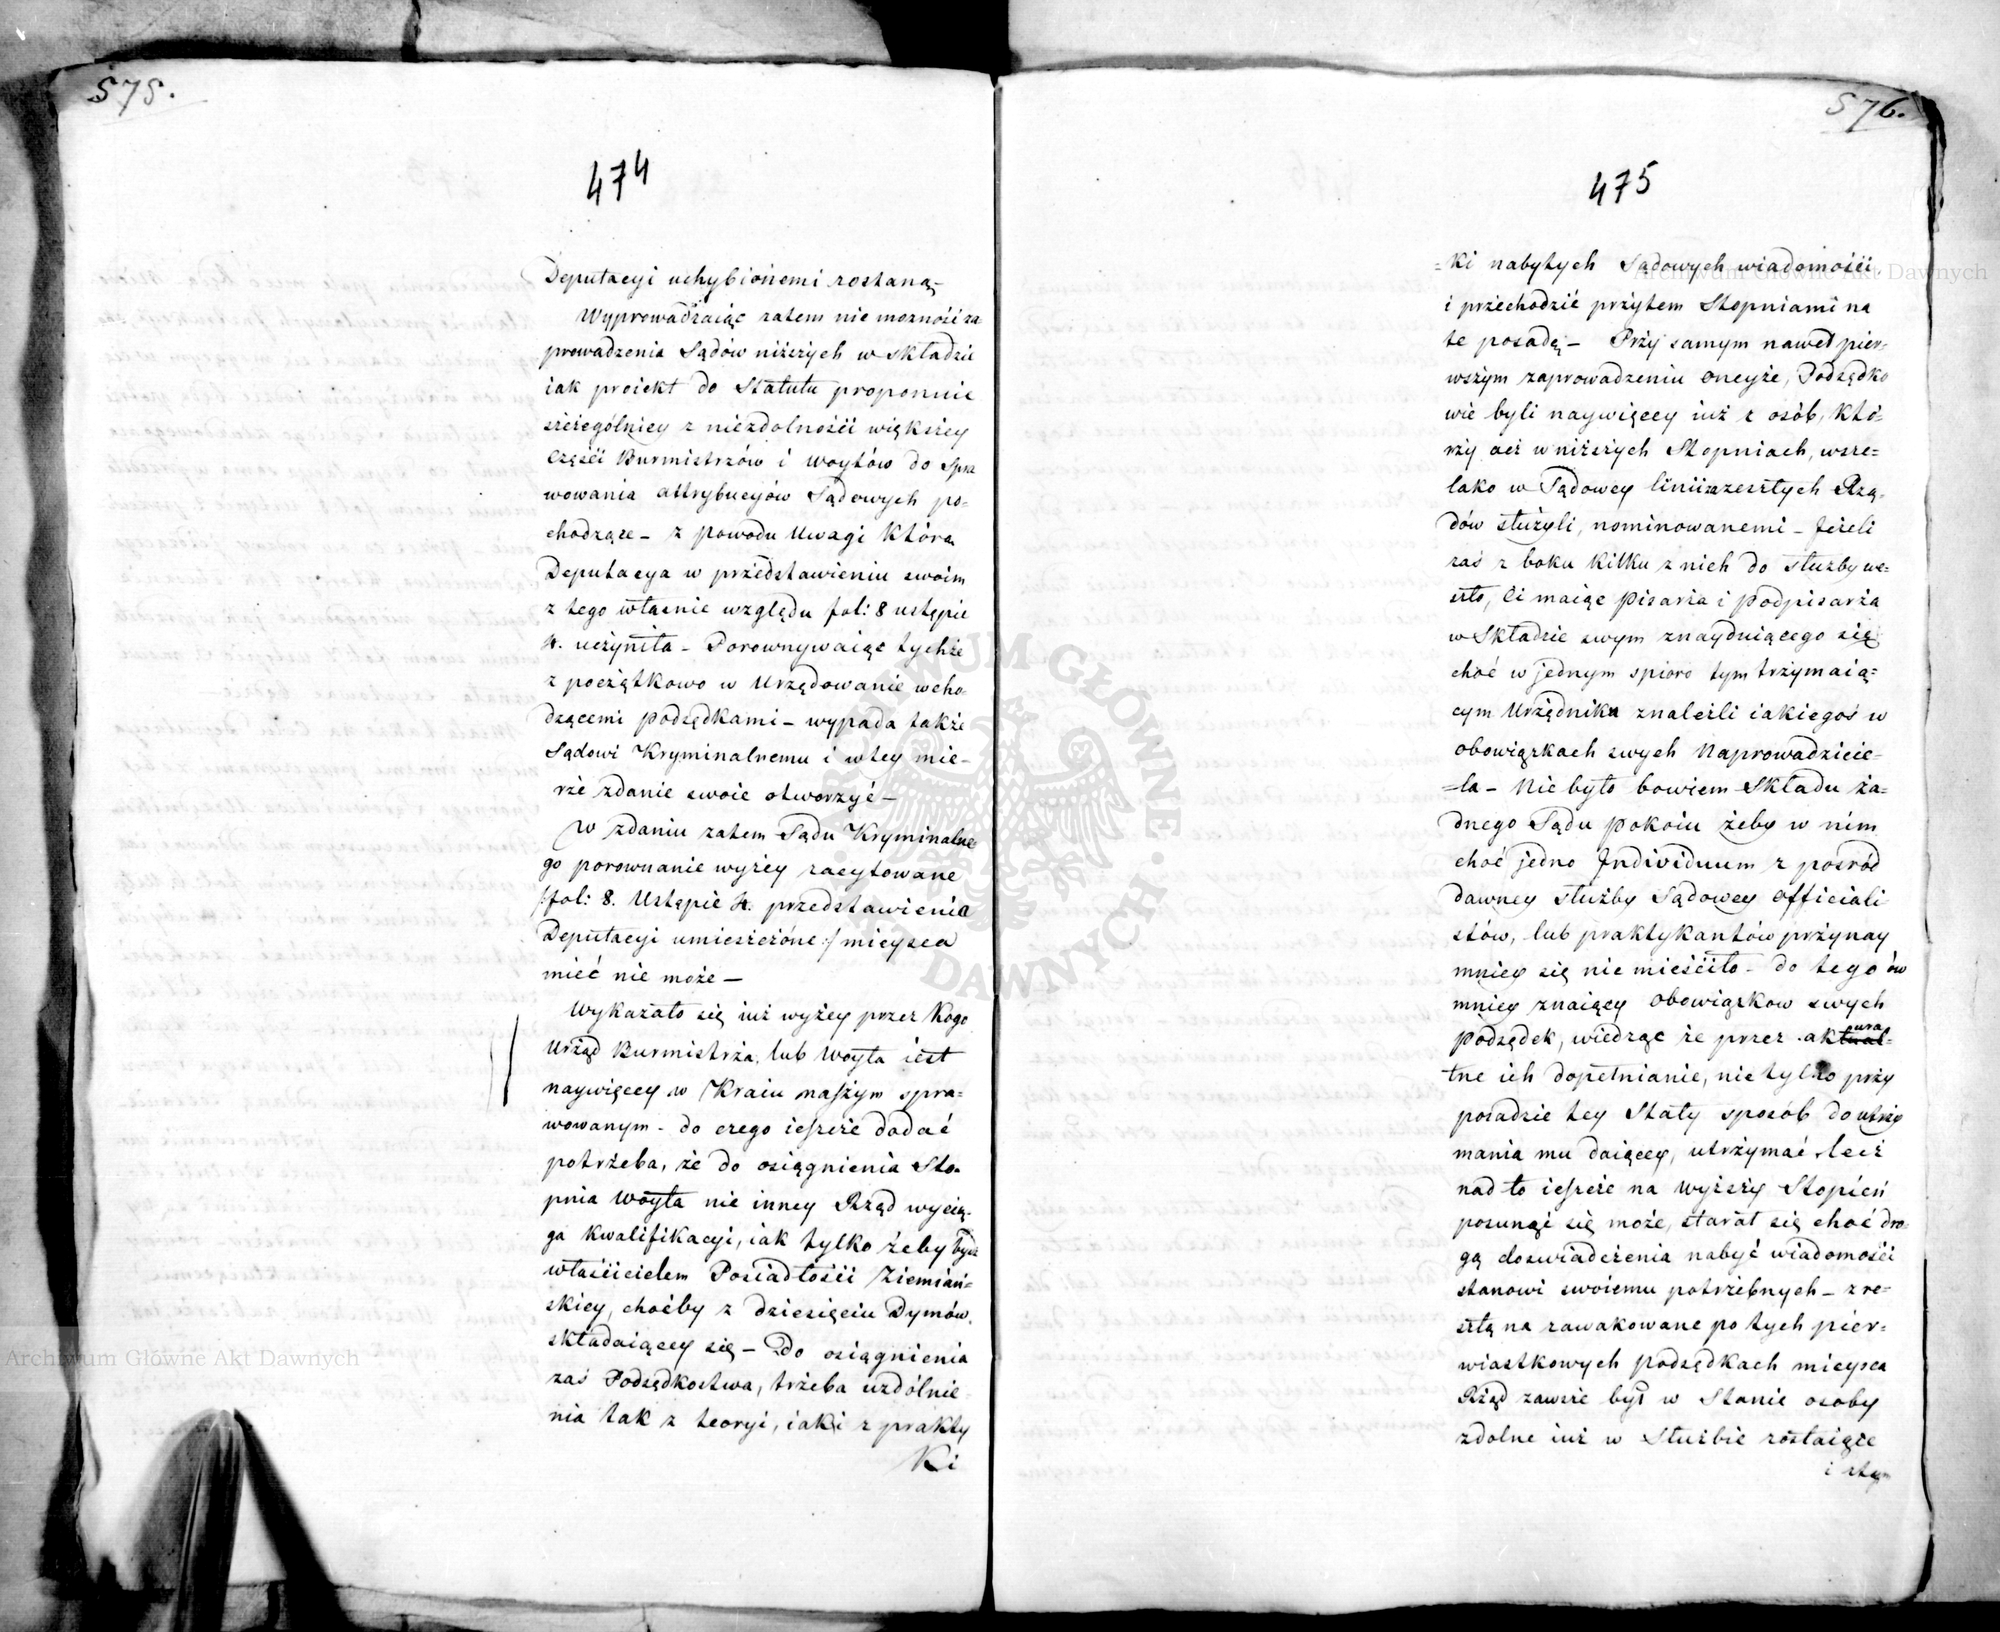 575.
474
Deputacyi uchybionemi zostaną.-
Wyprowadzaiąc zatem nie mozności za
prowadzenia Sądów niższych w składzie
iak proiekt do Statutu proponuie
szczególniey z niezdolności większey
Części Burmistrzów i Woytów do Spra
wowania attrybucyów Sądowych po-
chodzące - z powodu Uwagi którą
Deputacya w przedstawieniu swoim
z tego własnie względu fol: 8 ustępie
4. uczyniła - Porownywaiąc tychże
z początkowo w Urzędowanie wcho-
dzącemi podsędkami - wypada także
Sądowi Kryminalnemu i wtey mie-
rze zdanie swoie otworzyć -
W zdaniu zatem Sądu Kryminalne-
go porownanie wyżey zacytowane
/:fol: 8. Ustępie 4. przedstawienia
Deputacyi umieszczone:/ mieysca
mieć nie może -
Wykazało się iuż wyżey przez kogo
Urząd Burmistrza, lub Woyta iest
naywięcey w Kraiu naszym spra-
wowanym - do czego ieszcze dodać
potrzeba, że do osiągnienia Sto-
pnia Woyta nie inney Rząd wycią-
ga kwalifikacyi, iak tylko żeby być
właścicielem Posiadłości Ziemiań-
skiey, choćby z dziesięciu Dymów,
składaiącey się - Do osiągnienia
zaś Podsędkostwa, trzeba uzdolnie-
nia tak z teoryi, iak i z prakty
Ki
576.
475
=ki nabytych Sądowych wiadomości,
i przechodzić przytem Stopniami na
te posadę - Przy samym nawet pier-
wszym zaprowadzeniu oneyże, Podsędko
wie byli naywięcey iuż z osób, któ-
rzy acz w niższych Stopniach, wsze-
lako w Sądowey linii zeszłych Rzą-
dów służyli, nominowanemi - Jeżeli
zaś z boku kilku z nich do służby we-
szło, Ci maiąc Pisarza i Podpisarza
w Składzie swym znayduiącego się
choć w jednym spioro tym trzymaią-
cym Urzędniku znaleźli iakiegoś w
obowiązkach swych Naprowadzicie-
=la - Nie było bowiem Składu ża-
dnego Sądu pokoiu żeby w nim
choć jedno Individuum z pośród
dawney służby Sądowey officiali
stów, lub praktykantów przynay
mniey się nie mieściło - do tego ów
mniey znaiący obowiązkow swych
podsędek, wiedząc że przez akura-
tne ich dopełnianie, nie tylko przy
posadzie tey Stały sposób do utrzy
mania mu daiącey, utrzymać lecz
nad to ieszcze na wyższy Stopień
posunąć się może, starał się choć dro-
gą doswiadczenia nabyć wiadomości
stanowi swoiemu potrzebnych - zre-
sztą na zawakowane po tych pier-
wiastkowych podsędkach mieysca
Rząd zawsze był w Stanie osoby
zdolne iuż w Służbie zostaiące
i stąm
Archiwum Główne Akt Dawnych
Archiwum Główne Akt Dawnych
ARCHIWUM GŁÓWNE AKT DAWNYCH